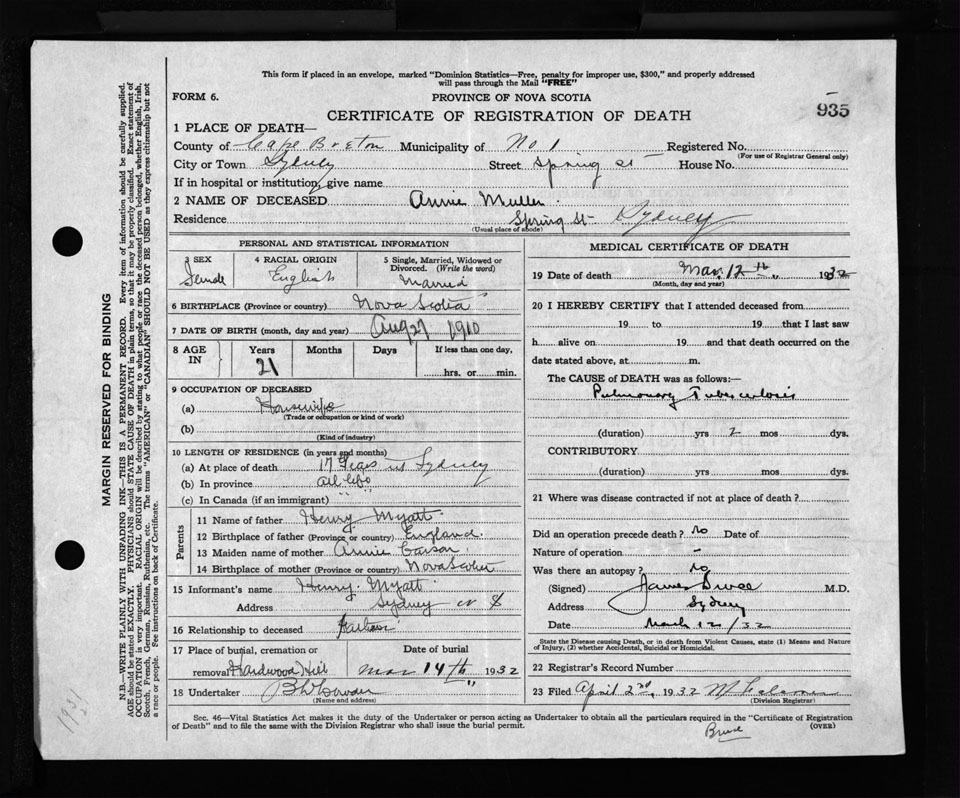 This form if placed in an envelope, marked "Dominion Statistics—Free, penalty for improper use, $300," and properly addressed
will pass through the Mail "FREE"
FORM 6.
PROVINCE OF NOVA SCOTIA
935
CERTIFICATE OF REGISTRATION OF DEATH
1 PLACE OF DEATH—
County of Cape Breton Municipality of No 1 Registered No.
(For use of Registrar General only)
City or Town Sydney Street Spring St House No.
If in hospital or institution, give name
2 NAME OF DECEASED Annie Mullen
Residence Spring St Sydney
(Usual place of abode)
PERSONAL AND STATISTICAL INFORMATION
3 SEX 4 RACIAL ORIGIN 5 Single, Married, Widowed or
Divorced. (Write the word)
Female English Married
6 BIRTHPLACE (Province or country) Nova Scotia
7 DATE OF BIRTH (month, day and year) Aug 27 1910
8 AGE IN Years Months Days If less than one day,
21 hrs. or min.
9 OCCUPATION OF DECEASED
(a) Housewife
(Trade or occupation or kind of work)
(b)
(Kind of industry)
10 LENGTH OF RESIDENCE (in years and months)
(a) At place of death 17 Years in Sydney
(b) In province all life
(c) In Canada (if an immigrant) " "
Parents
11 Name of father Henry Myatt
12 Birthplace of father (Province or country) England
13 Maiden name of mother Annie Carson
14 Birthplace of mother (Province or country) Nova Scotia
15 Informant's name Henry Myatt
Address Sydney N S
16 Relationship to deceased Father
17 Place of burial, cremation or Date of burial
removal Hardwood Hill Mar 14th 1932
18 Undertaker "
(Name and address)
MEDICAL CERTIFICATE OF DEATH
19 Date of death Mar. 12th " 1932
(Month, day and year)
20 I HEREBY CERTIFY that I attended deceased from
19 to 19 that I last saw
h alive on 19 and that death occurred on the
date stated above, at m.
The CAUSE of DEATH was as follows:
Pulmonary Tuberculosis
(duration) yrs 2 mos dys.
CONTRIBUTORY
(duration) yrs mos dys.
21 Where was disease contracted if not at place of death?
Did an operation precede death? no Date of
Nature of operation -
Was there an autopsy? no
(Signed) James Bruce M.D.
Address Sydney
Date March 12/32
State the Disease causing Death, or in death from Violent Causes, state (1) Means and Nature
of Injury, (2) whether Accidental, Suicidal or Homicidal.
22 Registrar's Record Number
23 Filed April 2nd, 1932
(Division Registrar)
Sec. 46—Vital Statistics Act makes it the duty of the Undertaker or person acting as Undertaker to obtain all the particulars required in the "Certificate of Registration
of Death" and to file the same with the Division Registrar who shall issue the burial permit. (OVER)
Bruce
MARGIN RESERVED FOR BINDING
N.B.—WRITE PLAINLY WITH UNFADING INK—THIS IS A PERMANENT RECORD. Every item of information should be carefully supplied.
AGE should be stated EXACTLY. PHYSICIANS should STATE CAUSE OF DEATH in plain terms, so that it may be properly classified. Exact statement of
OCCUPATION is very important. RACIAL ORIGIN will be described by stating to what people or race the deceased person belonged, whether English, Irish,
Scotch, French, German, Russian, Ruthenian, etc. The terms "AMERICAN" or "CANADIAN" SHOULD NOT BE USED as they express citizenship but not
a race or people. See instructions on back of Certificate.